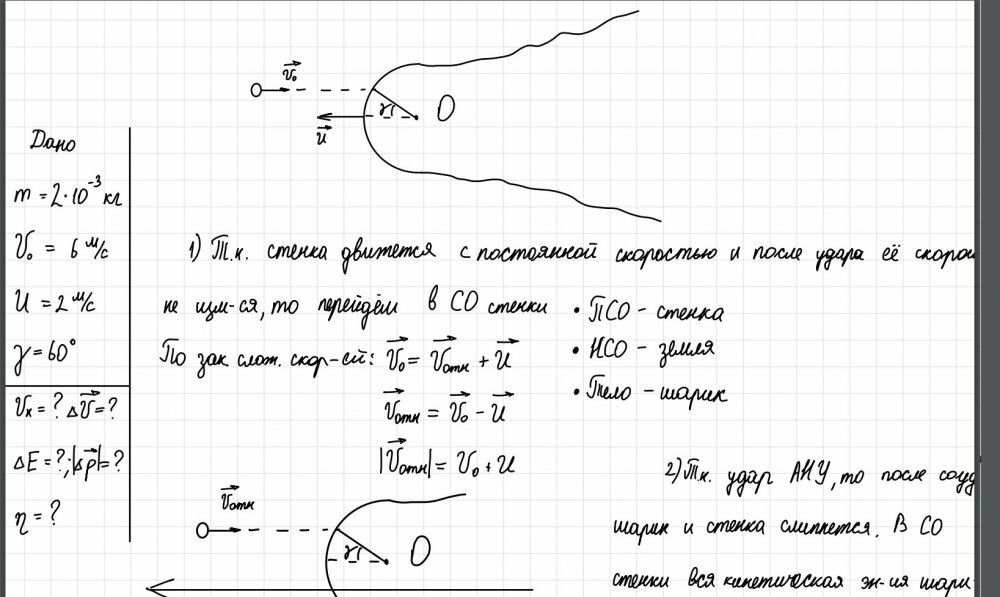 V₀
γ
O
u
Дано
m = 2·10⁻³ кг
V₀ = 6 м/с
U = 2 м/с
γ = 60°
Vк = ? ΔV = ?
ΔE = ?; |Δp| = ?
η = ?
1) Т.к. стенка движется с постоянной скоростью и после удара её скорос
не изм-ся, то перейдём в СО стенки
• ПСО - стенка
По зак слож. скор-ей: V₀ = Vотн + U
• НСО - земля
Vотн = V₀ - U
• Тело - шарик
|Vотн| = V₀ + U
2) Т.к. удар АНУ, то после соуд
Vотн
γ
O
шарик и стенка слипнется. В СО
стенки вся кинетическая эн-ия шари